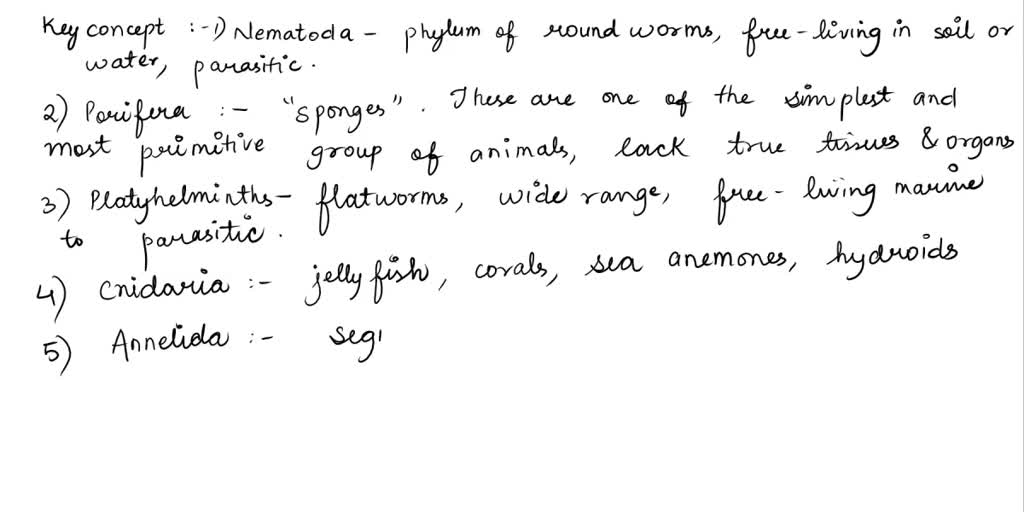 Key concept :- 1) Nematoda - phylum of round worms, free-living in soil or
water, parasitic.
2) Porifera :- "sponges". These are one of the simplest and
most primitive group of animals, lack true tissues & organs
3) Platyhelminths- flatworms, wide range, free-living marine
to parasitic.
4) Cnidaria :- jelly fish, corals, sea anemones, hydroids
5) Annelida :- seg